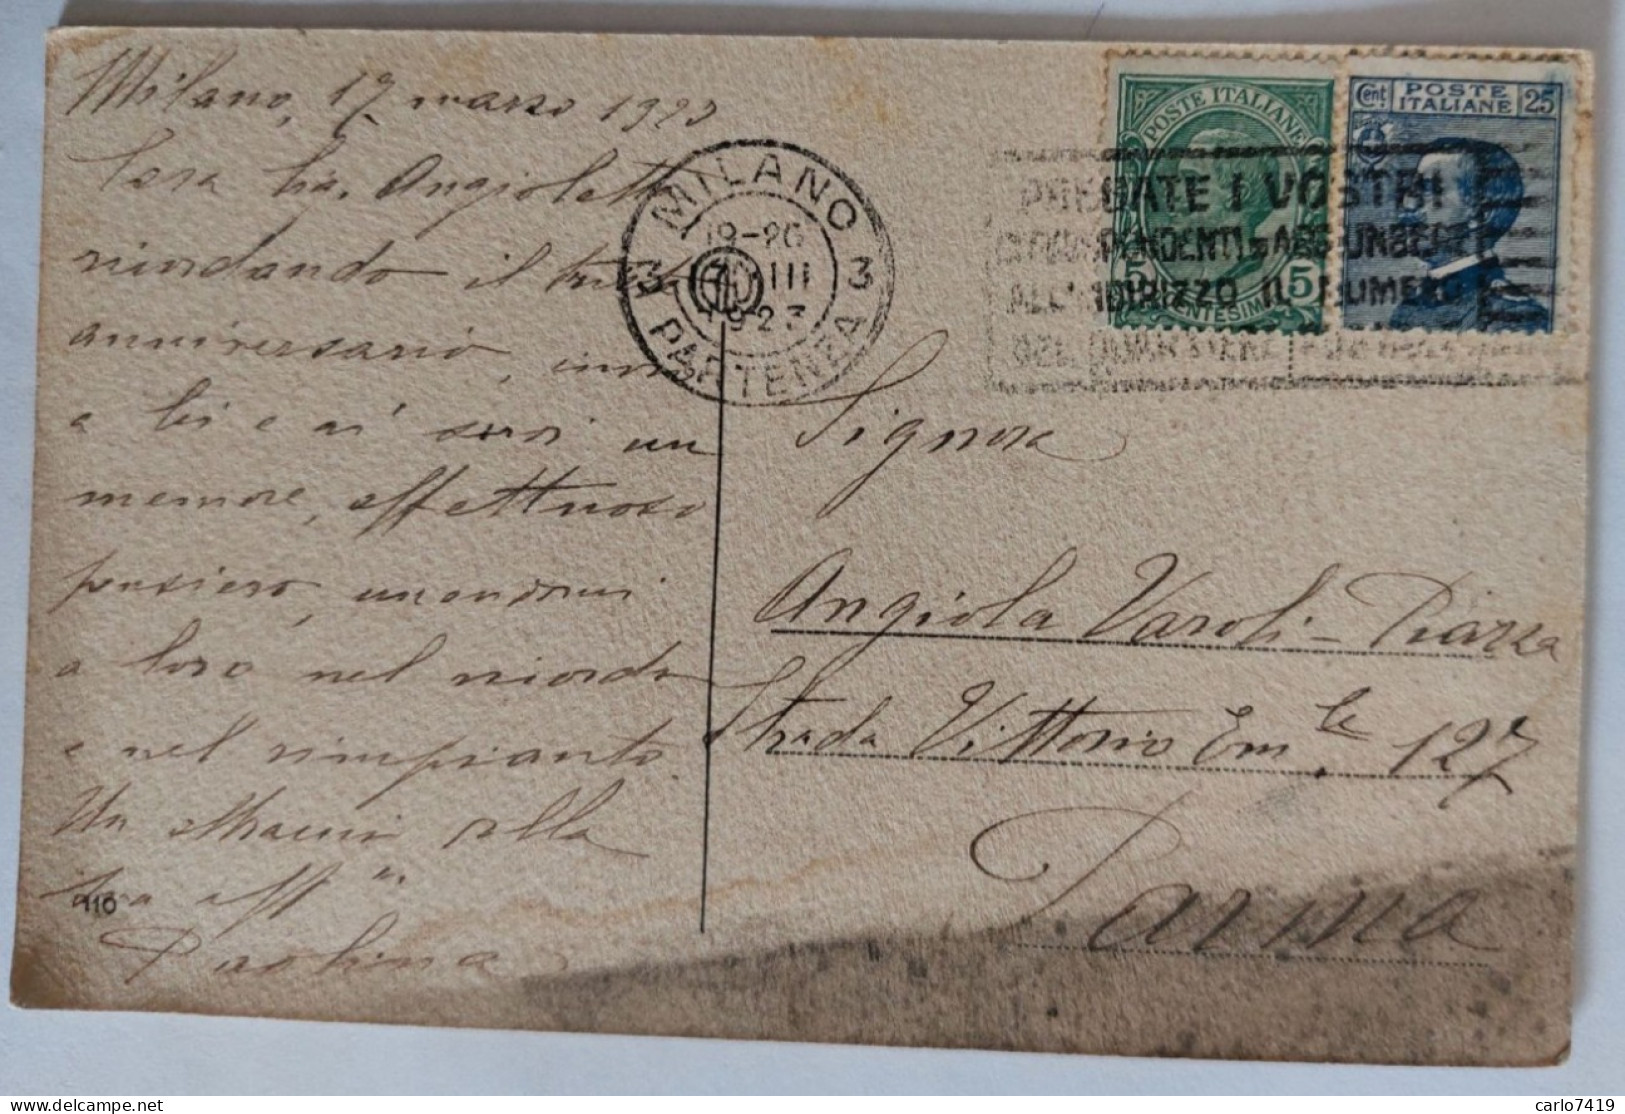 Milano, 17 marzo 1923
Cara Sig. Angioletta
ricordando il triste
anniversario, invio
a lei e ai suoi un
memore, affettuoso
pensiero, unendomi
a loro nel ricordo
e nel rimpianto.
Un abbraccio dalla
sua aff.
Paolina
110
MILANO
3 3
19-20
17 III
1923
PARTENZA
POSTE ITALIANE
5 5
CENTESIMI
Cent. POSTE ITALIANE 25
PREGATE I VOSTRI
CORRISPONDENTI D'AGGIUNGERE
ALL'INDIRIZZO IL NUMERO
DEL QUARTIERE POSTALE
Signora
Angiola Varoli - Piazza
Strada Vittorio Em.le 127
Parma
carlo7419